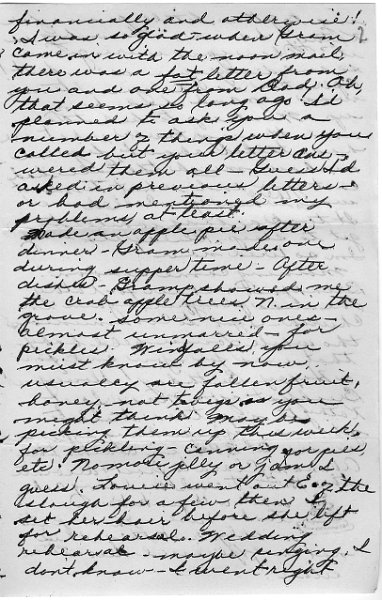 financially and otherwise!
I was so glad when Gram
came in with the noon mail,
there was a fat letter from
you and one from Dad. Oh,
that seems so long ago. I'd
planned to ask you a
number of things when you
called but your letter ans-
wered them all - Guess I'd
asked in previous letters -
or had mentioned my
problems at least.
Made an apple pie after
dinner - Gram made one
during supper time - After
dishes - Gramp showed me
the crab apple trees N. in the
grove. Some nice ones -
almost unmarred - for
pickles. Windfalls you
must know by now
usually are fallen fruit,
honey, not twigs as you
might think. May be
picking them up this week
for pickling - canning for pies
etc. No more jelly or jam I
guess. Louise went out E. of the
slough for a few then I
set her hair before she left
for rehearsal. Wedding
rehearsal - maybe singing, I
don't know - I went right